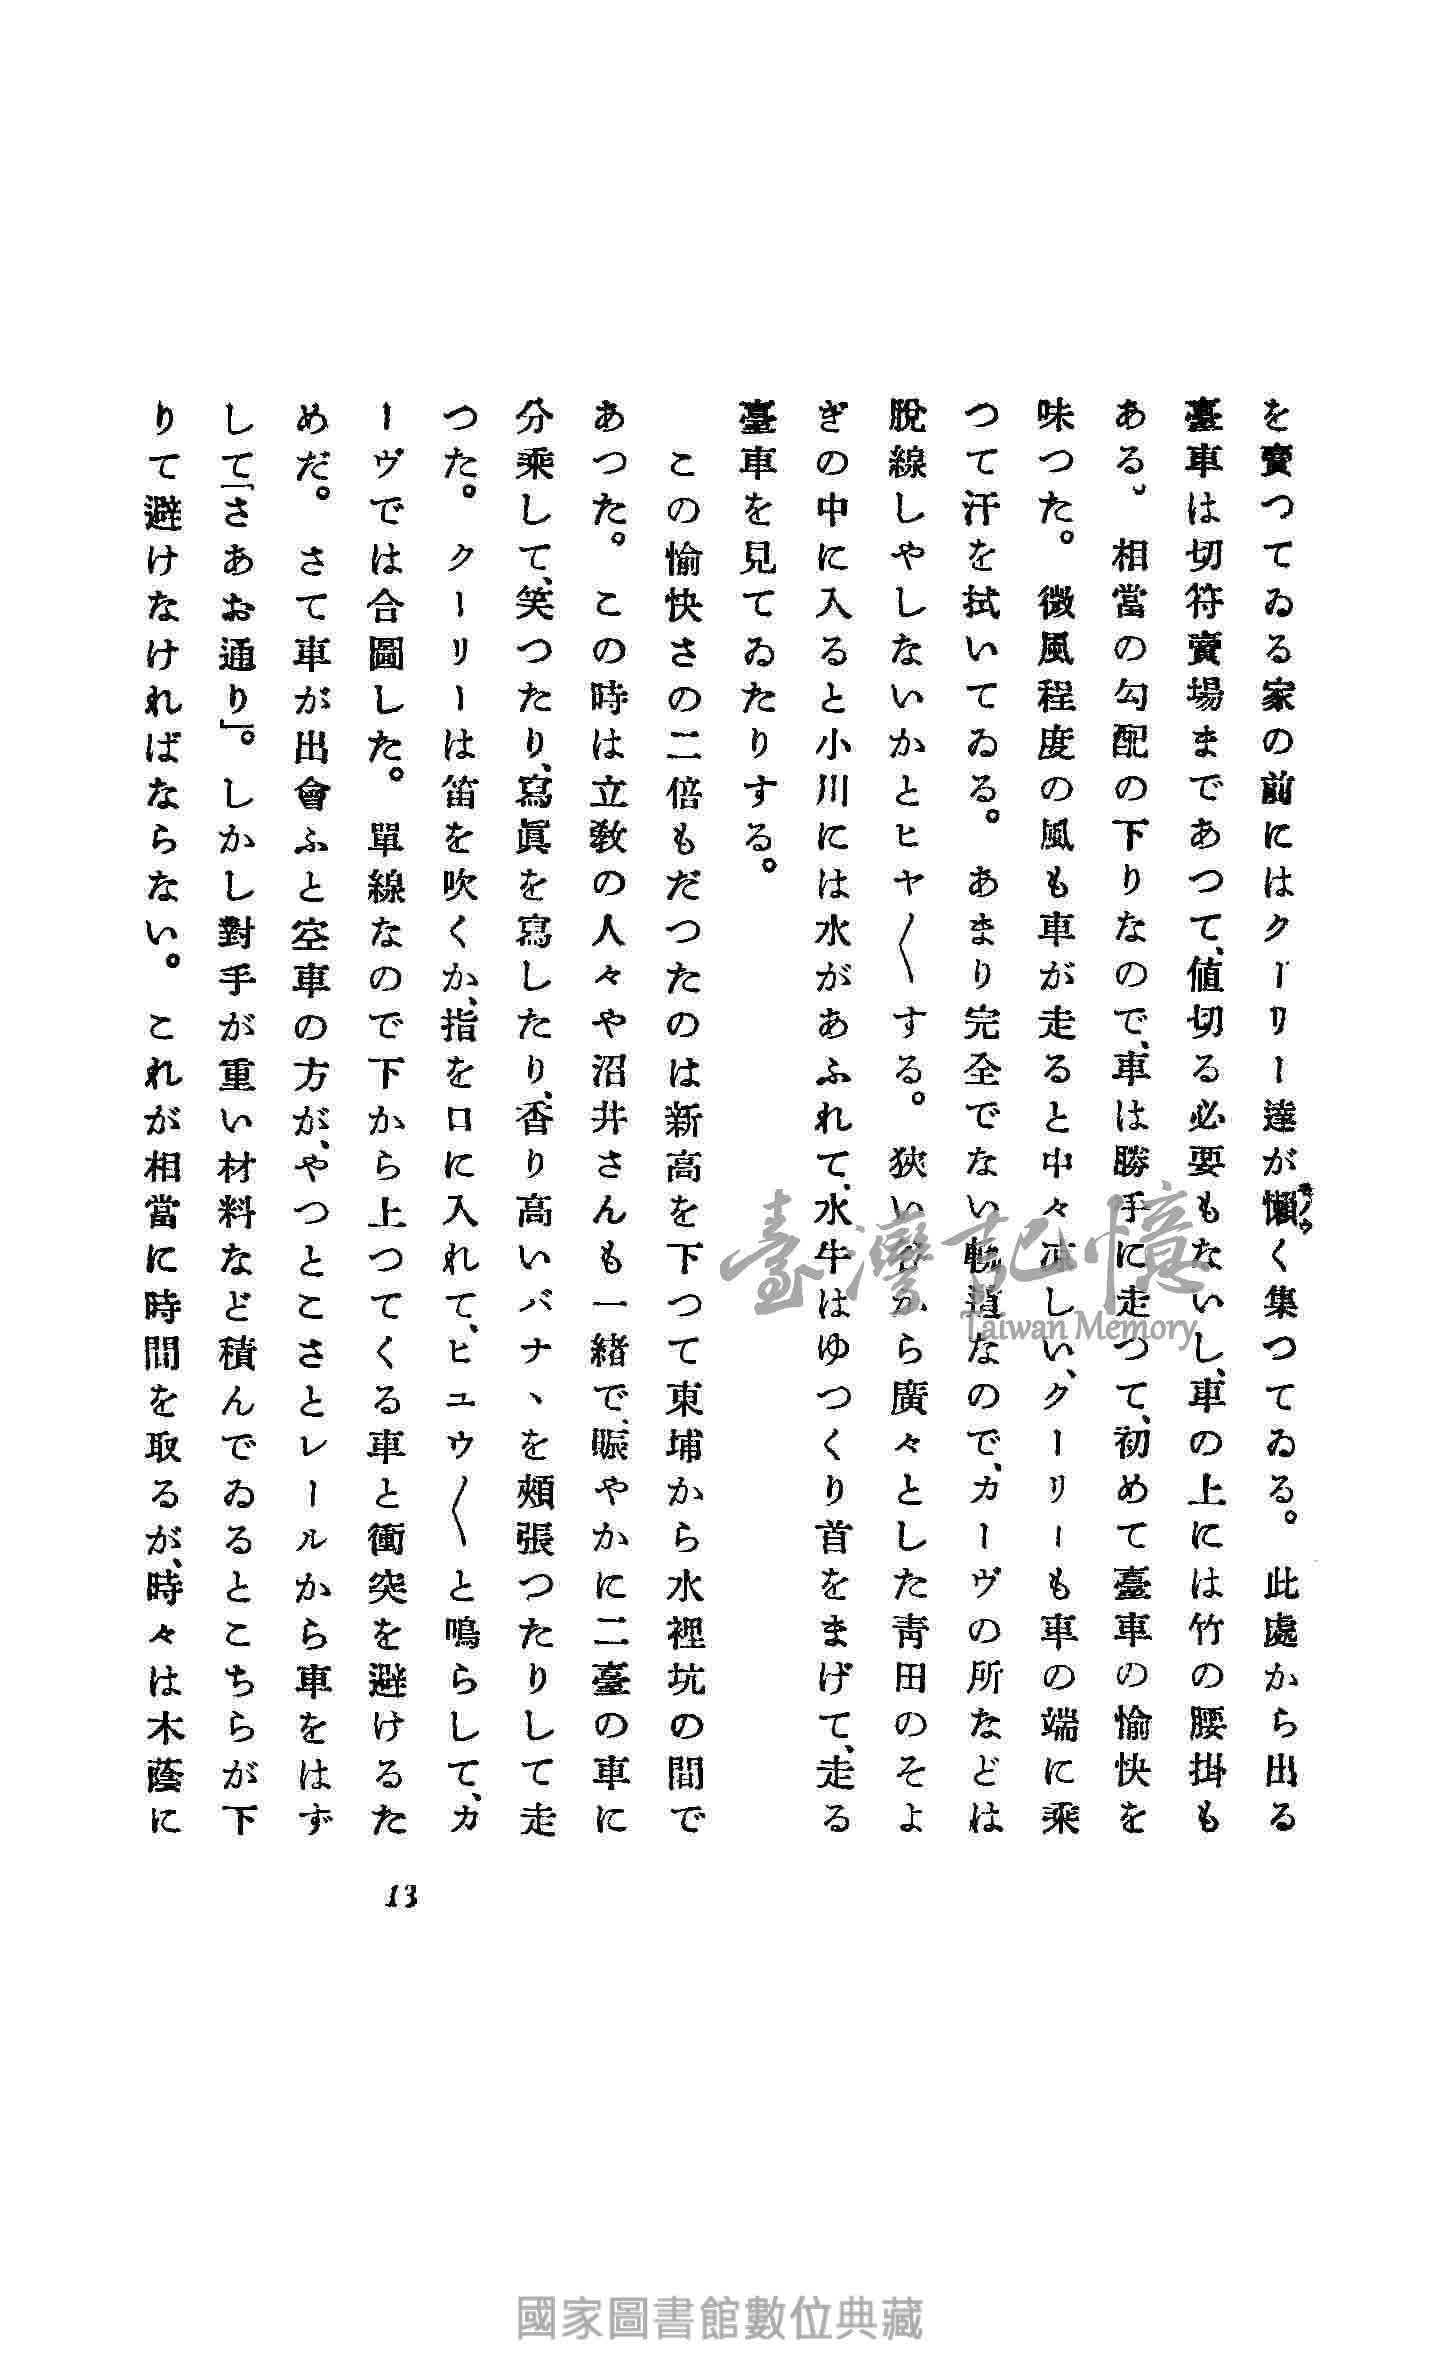 を賣つてゐる家の前にはクーリー達が懶く集つてゐる。此處から出る
臺車は切符賣場まであつて、値切る必要もないし、車の上には竹の腰掛も
ある。相當の勾配の下りなので、車は勝手に走つて、初めて臺車の愉快を
味つた。微風程度の風も車が走ると中々凉しい、クーリーも車の端に乘
つて汗を拭いてゐる。あまり完全でない軌道なので、カーヴの所などは
脫線しやしないかとヒヤ〱する。狹い谷から廣々とした靑田のそよ
ぎの中に入ると小川には水があふれて、水牛はゆつくり首をまげて、走る
臺車を見てゐたりする。
この愉快さの二倍もだつたのは新高を下つて東埔から水裡坑の間で
あつた。この時は立敎の人々や沼井さんも一緖で、賑やかに二臺の車に
分乘して、笑つたり、寫眞を寫したり、香り高いバナヽを頰張つたりして走
つた。クーリーは笛を吹くか、指を口に入れて、ヒユウ〱と鳴らして、カ
ーヴでは合圖した。單線なので下から上つてくる車と衝突を避けるた
めだ。さて車が出會ふと空車の方が、やつとこさとレールから車をはず
して「さあお通り」。しかし對手が重い材料など積んでゐるとこちらが下
りて避けなければならない。これが相當に時間を取るが、時々は木蔭に
13
臺灣記憶
Taiwan Memory
國家圖書館數位典藏